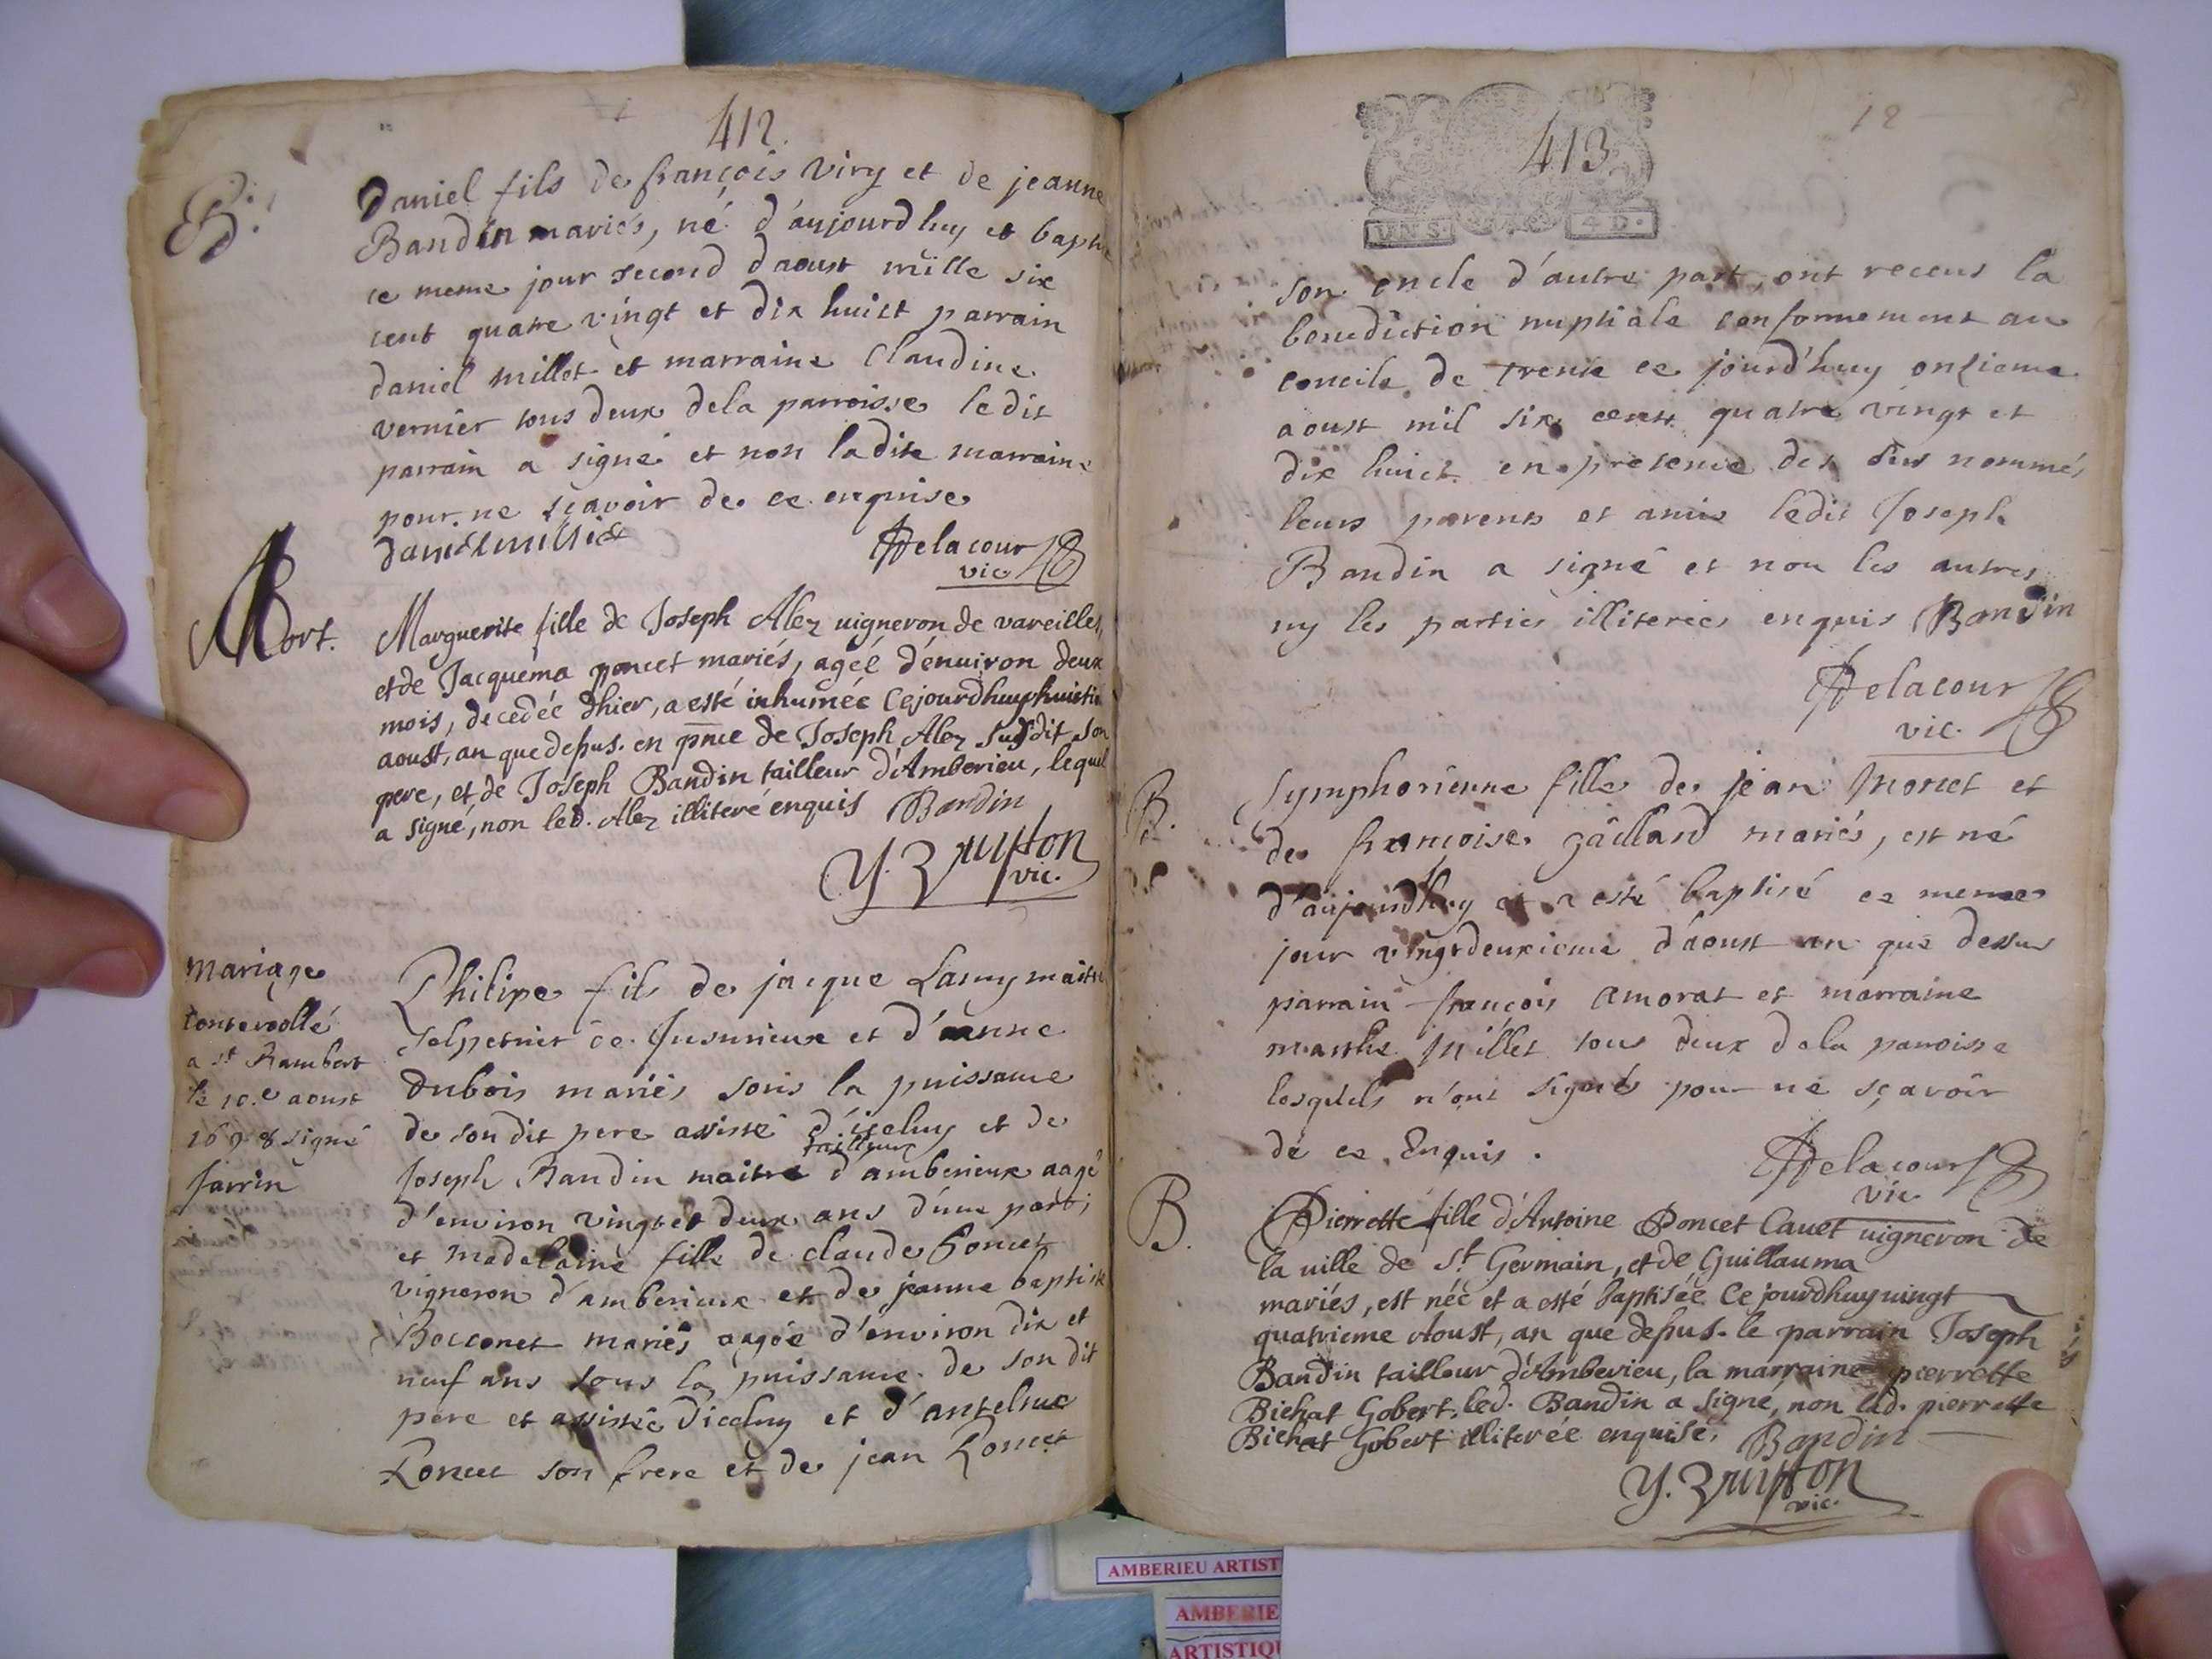 412.
B.
Daniel fils de françois Viry et de jeanne
Bandin mariés, né d'aujourdhuy et baptisé
ce meme jour second daoust mille six
cent quatre vingt et dix huict parrain
daniel millet et marraine Claudine
vernier tous deux dela parroisse ledit
parrain a signé et non ladite marraine
pour ne sçavoir de ce enquise
daniel millet Delacour
vic
Mort.
Marguerite fille de Joseph Alez vigneron de vareilles,
et de Jacquema poncet mariés, agéé d'enuiron deux
mois, decedée dhier, a esté inhumée Cejourdhuy huictie
aoust, an que dessus. en pnce de Joseph Alez susdit son
pere, et de Joseph Bandin tailleur d'Amberieu, lequel
a signé, non led. Alez illiteré enquis Bandin
vic.
mariage
controollé
a st Rambert
le 10.e aoust
1698 signé
farrin
Philipe fils de jacque Lamy maitre
salpetrier de Jusurieux et d'anne
dubois mariés sous la puissance
de son dit pere assisté d'iceluy et de
tailleur
Joseph Bandin maitre d'amberieux aagé
d'environ vingt et deux ans d'une part;
et madelaine fille de claude Poncet
vigneron d'amberieux et de jeanne baptiste
Bocconet mariés aagée d'environ dix et
neuf ans sous la puissance de son dit
pere et assistée d'iceluy et d'antelme
Poncet son frere et de jean Poncet
413
12
UN S. 4 D.
son oncle d'autre part, ont receus la
benediction nuptiale conformement au
concile de trente ce jourd'huy onzieme
aoust mil six cents quatre vingt et
dix huict en presence des sus nommés
leurs parents et amis ledit Joseph
Bandin a signé et non les autres
ny les parties illiterées enquis Bandin
Delacour
vic.
B.
Symphorienne fille de jean Moncet et
de françoise gaillard mariés, est né
d'aujourdhuy et a esté baptisé ce meme
jour vingtdeuxieme d'aoust an que dessus
parrain françois amorat et marraine
marthe Millet tous deux dela paroisse
lesquels n'ont signés pour ne sçavoir
de ce Enquis.
Delacour
vic
B.
Pierrette fille d'Antoine Poncet Cauet vigneron de
la uille de St Germain, et de Guillauma
mariés, est néé et a esté baptisée Ce jourdhuy uingt
quatrieme Aoust, an que dessus. le parrain Joseph
Bandin tailleur d'Amberieu, la marraine pierrette
Bichat Gobert, led. Bandin a signé, non lad. pierrette
Bichat Gobert illiterée enquise, Bandin
vic.
AMBERIEU ARTIST
AMBERIE
ARTISTIQU